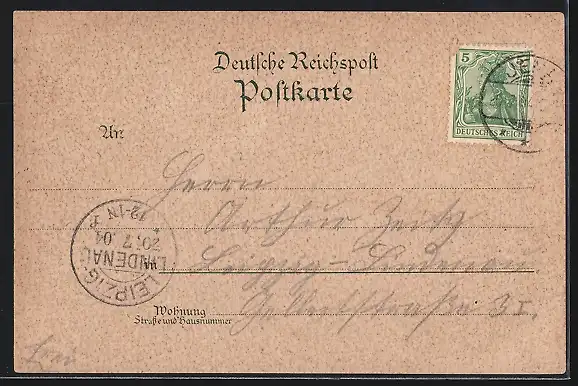 Deutsche Reichspost
Postkarte
5
DEUTSCHES REICH
An
Herrn
Arthur Zeitz
in Leipzig-Lindenau
Wohnung
Straße und Hausnummer
LEIPZIG-LINDENAU
20.7.04
12-1N